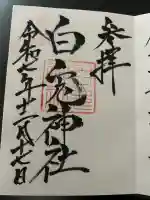 奉拝
白兎神社
令和二年十二月十七日